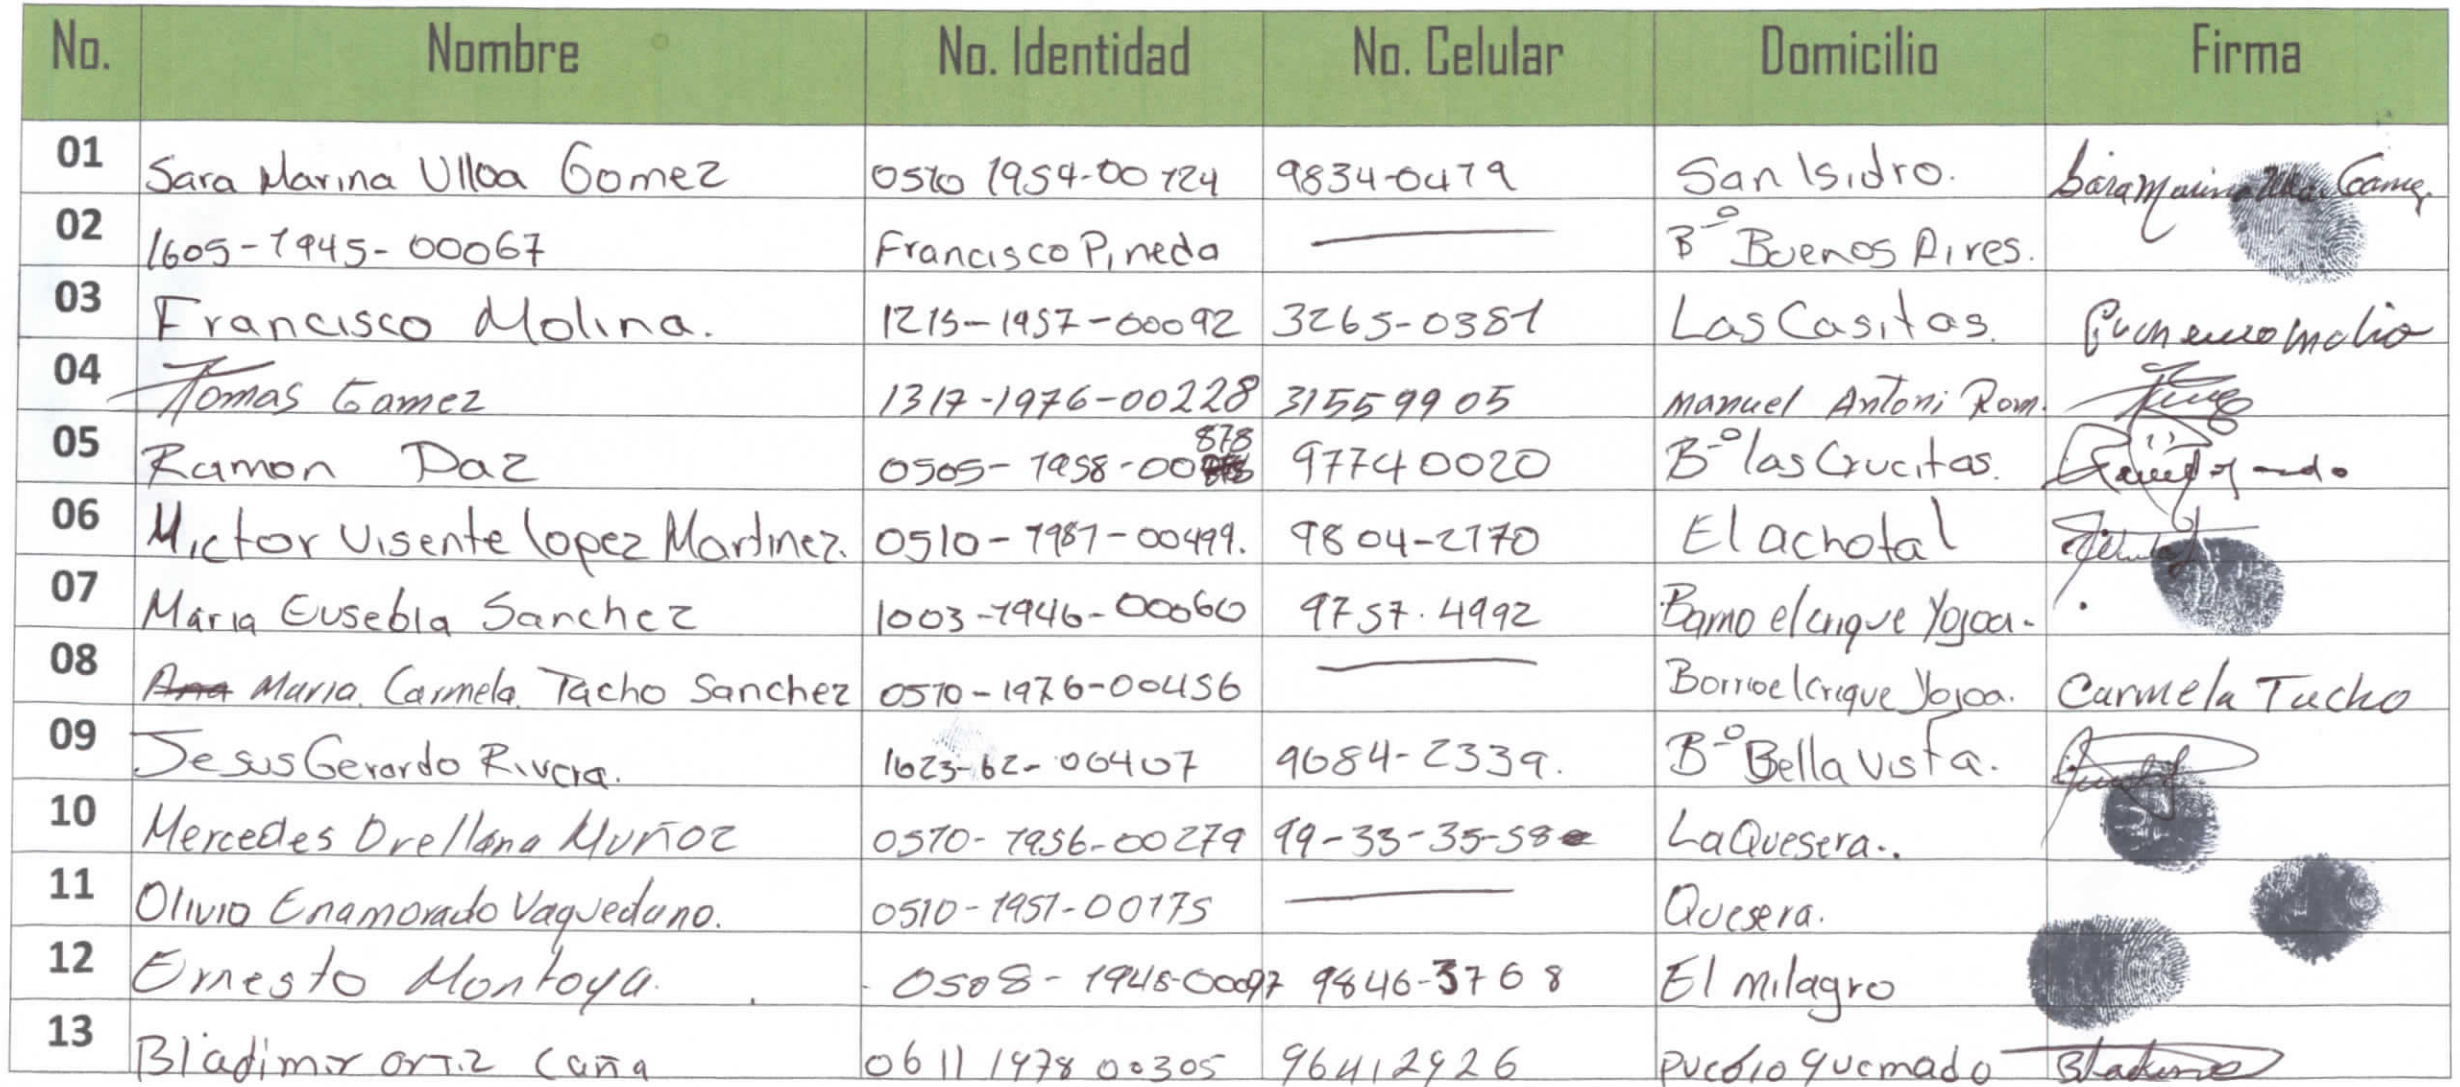 No. Nombre No. Identidad No. Celular Domicilio Firma
01 Sara Marina Ulloa Gomez 0510 1954-00124 9834-0479 San Isidro. Sara Marina Ulloa Gomez
02 1605-1945-00067 Francisco Pineda — B-o Buenos Aires.
03 Francisco Molina. 1215-1957-00092 3265-0381 Las Casitas.
04 Tomas Gamez 1317-1976-00228 31559905 Manuel Antoni Rom.
05 Ramon Paz 0505-1958-00878 97740020 B-o las Crucitas.
06 Mictor Visente lopez Martinez. 0510-1987-00499. 9804-2170 El achotal
07 Maria Eusebia Sanchez 1003-1946-00060 9757.4992 Barrio el crique Yojoa-
08 Ana Maria. Carmela. Tacho Sanchez 0510-1976-00456 — Barrio el crique Yojoa. Carmela Tacho
09 Jesus Gerardo Rivera. 1623-62-00407 9684-2339. B-o Bella Vista.
10 Mercedes Orellana Muñoz 0510-1956-00279 99-33-35-58 La Quesera..
11 Olivia Enamorado Vaquedano. 0510-1951-00175 — Quesera.
12 Ernesto Montoya. 0508-1948-00097 9846-3768 El milagro
13 Bladimir ortiz Caña 0611 1978 00305 96412926 pueblo quemado